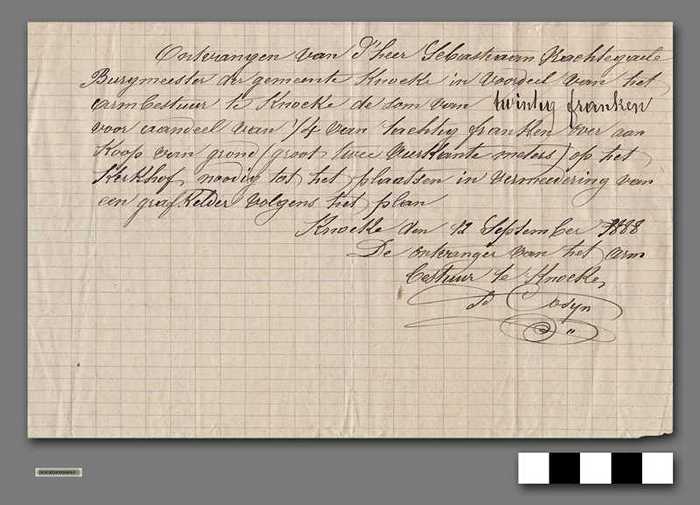 Ontvangen van d'heer Sebastiaan Nachtegaele
Burgmeester der gemeente Knocke in voordeel van het
armbestuur te Knocke de som van twintig franken
voor aandeel van 1/4 van tachtig franken over aan
Koop van grond (groot twee vierkante meters) op het
Kerkhof, noodig tot het plaatsen in vermeidering van
een grafkelder volgens het plan
Knocke den 12 September 1888
De ontvanger van het arm
bestuur te Knocke,
Cosyn